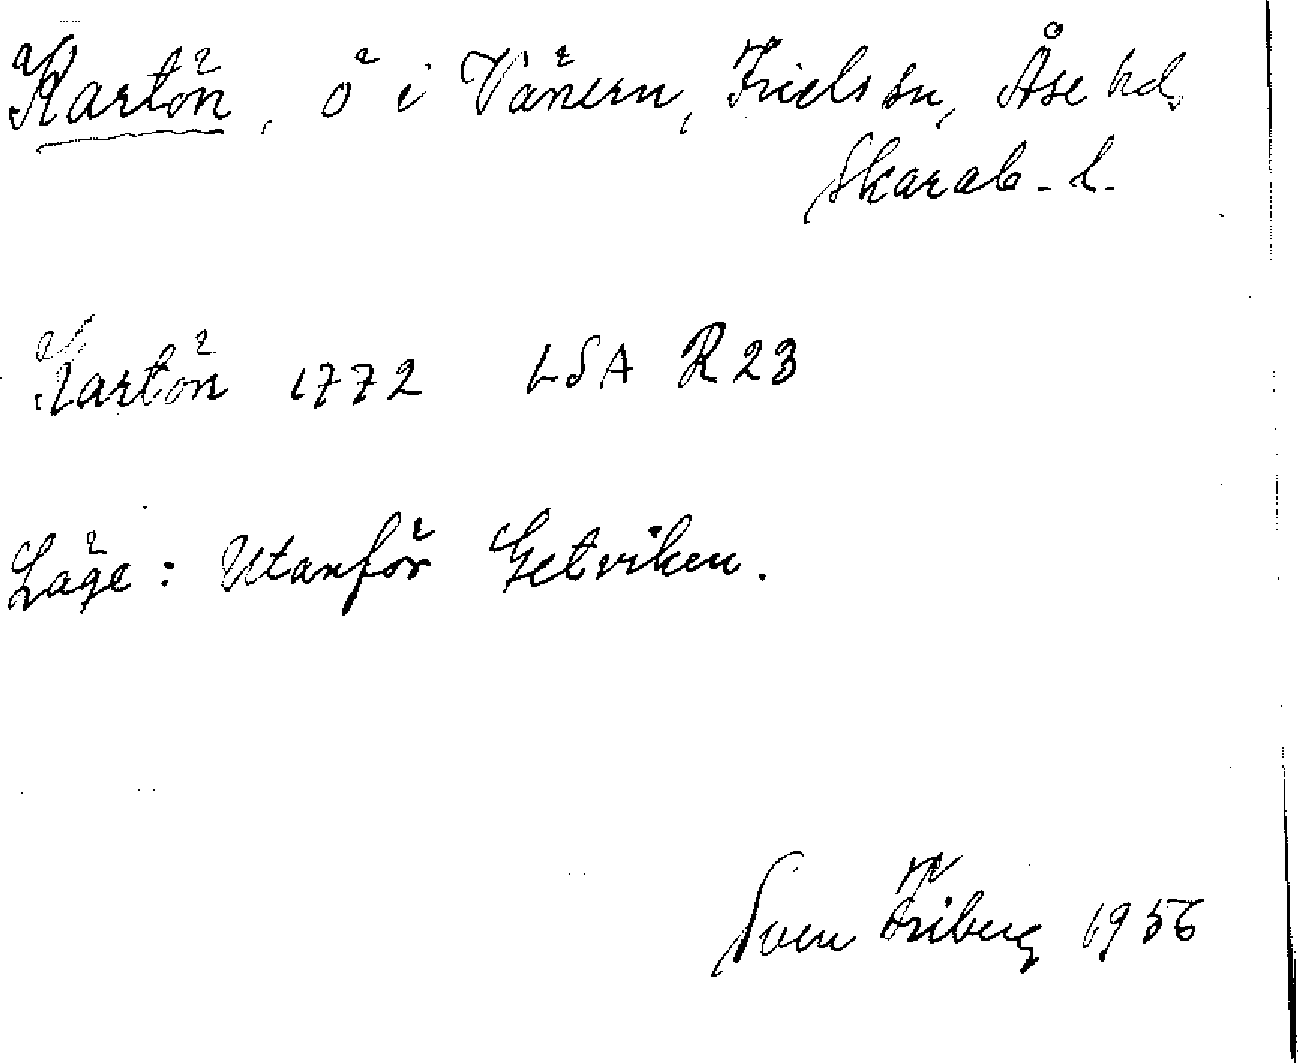 Kartön, ö i Vänern, Friels sn, Åse hd,
Skarab. l.
Kartön 1772 LSA R23
Läge: Utanför Getviken.
Sven Friberg 1956